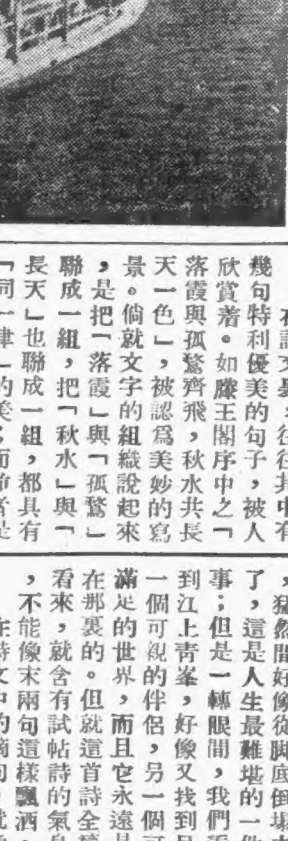 文裏，往往其中有
幾句特利優美的句子，被人
欣賞着。如滕王閣序中之「
落霞與孤鶩齊飛，秋水共長
天一色」，被認爲美妙的寫
景。倘就文字的組織說起來
，是把「落霞」與「孤鶩」
聯成一組，把「秋水」與「
長天」也聯成一組，都具有
「同一律」的美；而
，猛然間好像從脚底倒塌
了，這是人生最難堪的一件
事；但是一轉眼間，我們看
到江上青峯，好像又找到另
一個可親的伴侶，另一個可
滿足的世界，而且它永遠是
在那裏的。但就這首詩全
看來，就含有試帖詩的氣息
，不能像末兩句這樣飄洒，
在詩文中的摘句，就